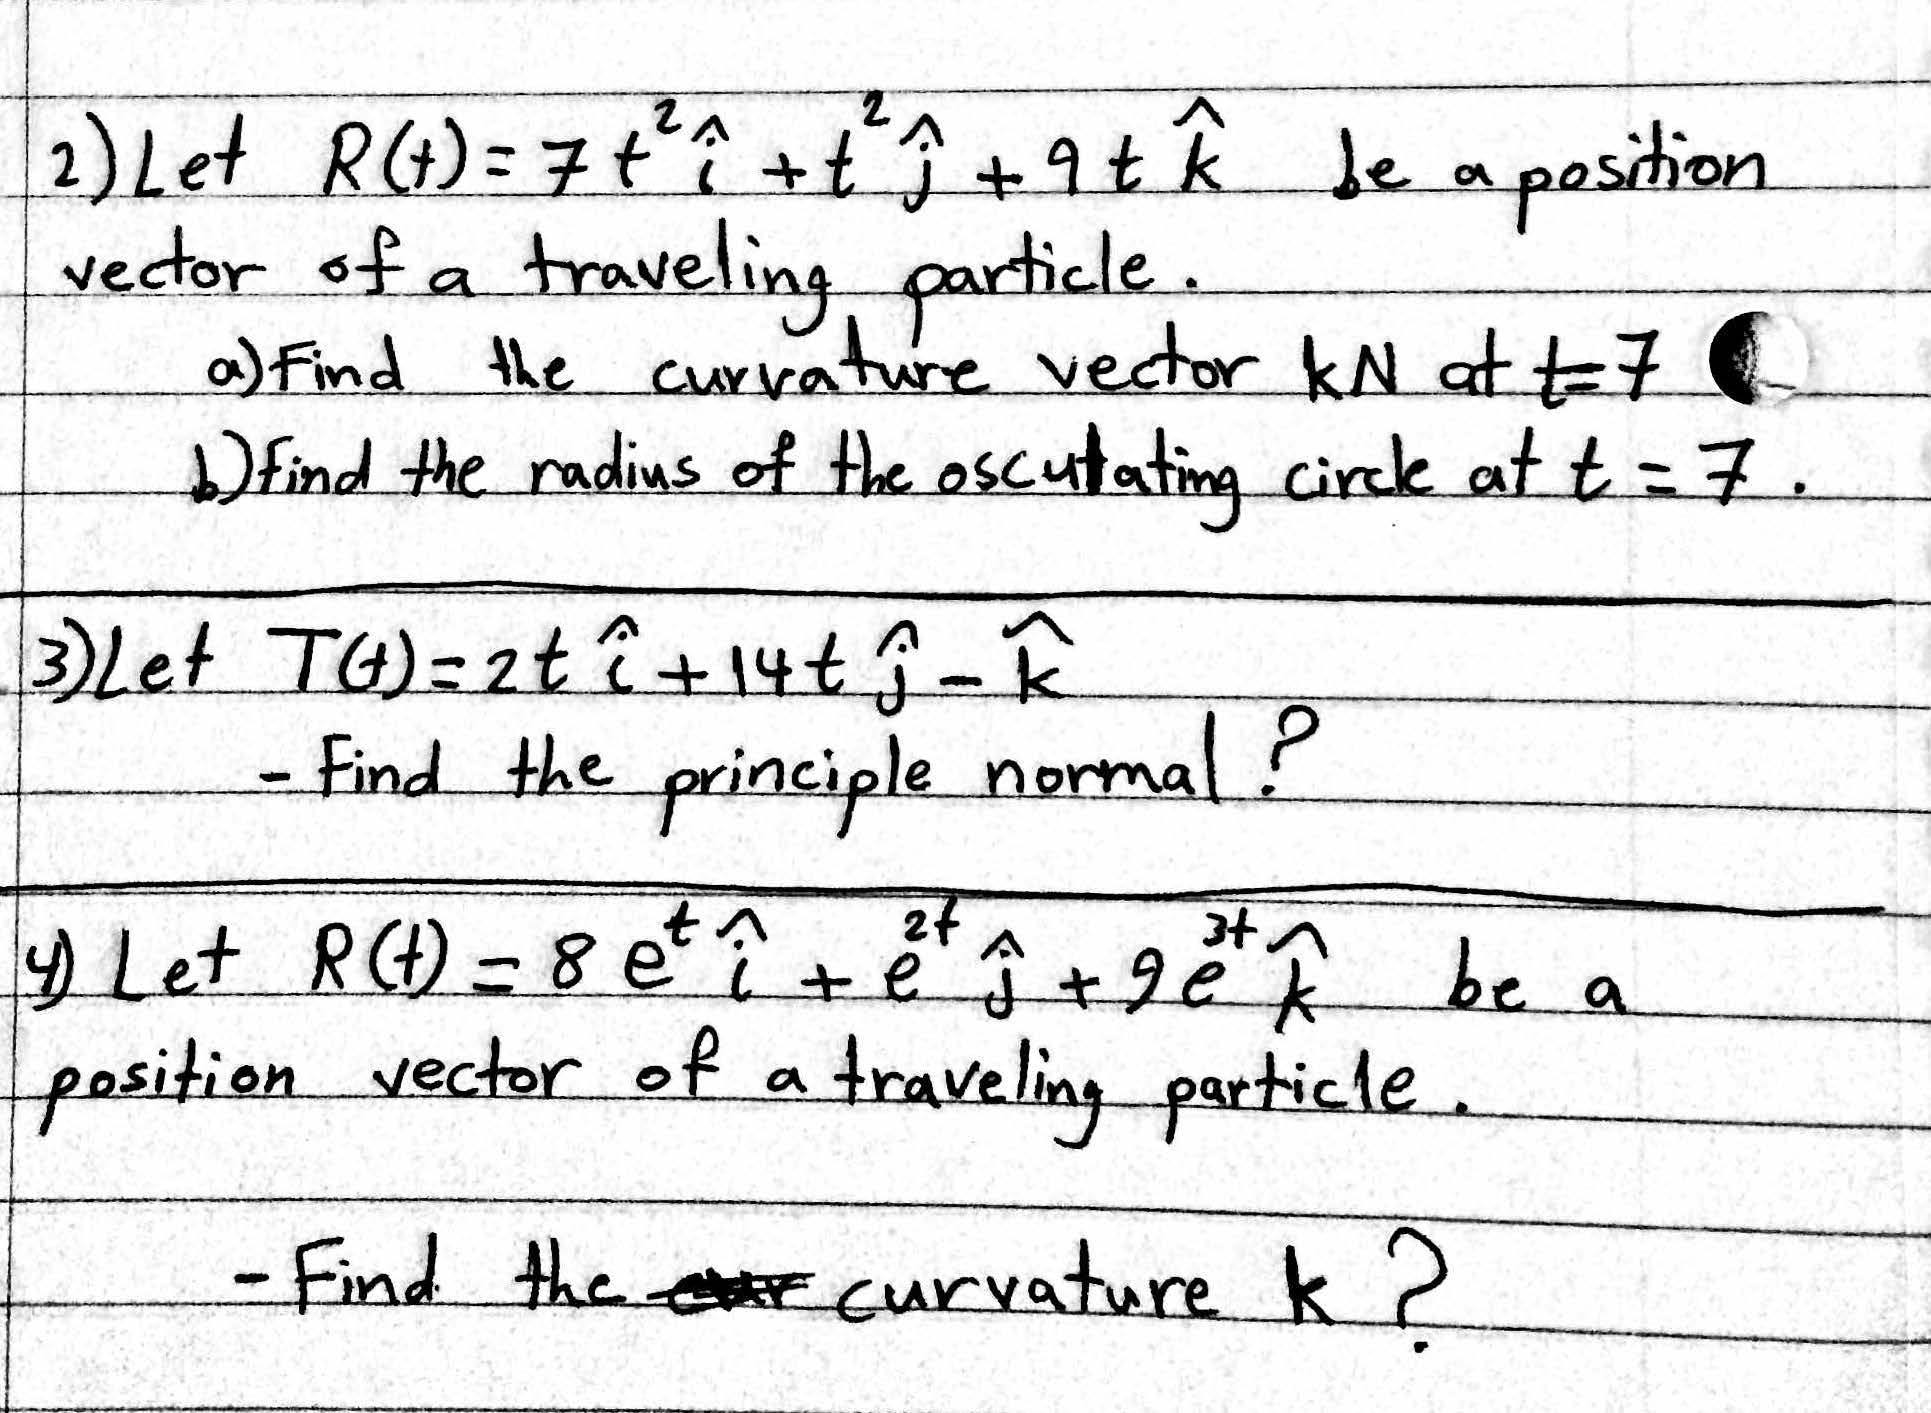 2) Let R(t) = 7t² î + t² ĵ + 9t k̂ be a position
vector of a traveling particle.
a) Find the curvature vector kN at t=7
b) find the radius of the osculating circle at t = 7.
3) Let T(t) = 2t î + 14t ĵ - k̂
- Find the principle normal?
4) Let R(t) = 8e^t î + e^2t ĵ + 9e^3t k̂ be a
position vector of a traveling particle.
- Find the curvature k?